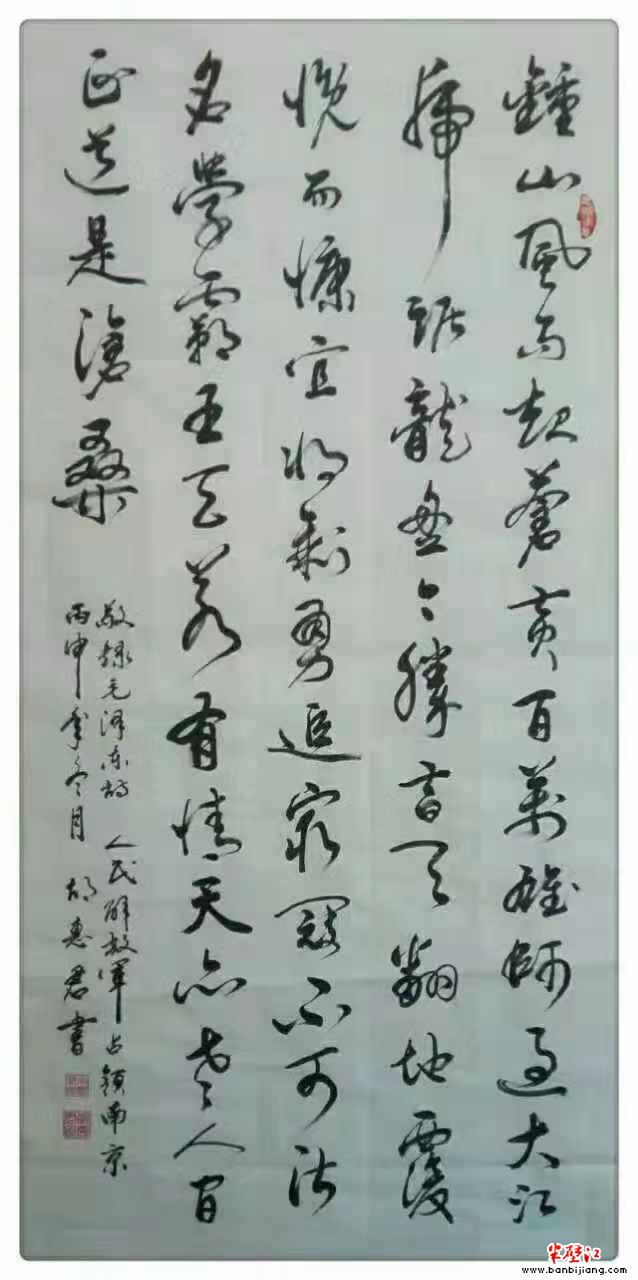 鍾山風雨起蒼黃百萬雄師過大江
虎踞龍盤今勝昔天翻地覆
慨而慷宜將剩勇追窮寇不可沽
名學霸王天若有情天亦老人間
正道是滄桑
敬録毛澤東詩 人民解放軍占領南京
丙申年冬月 胡惠君書
半壁江
www.banbijiang.com